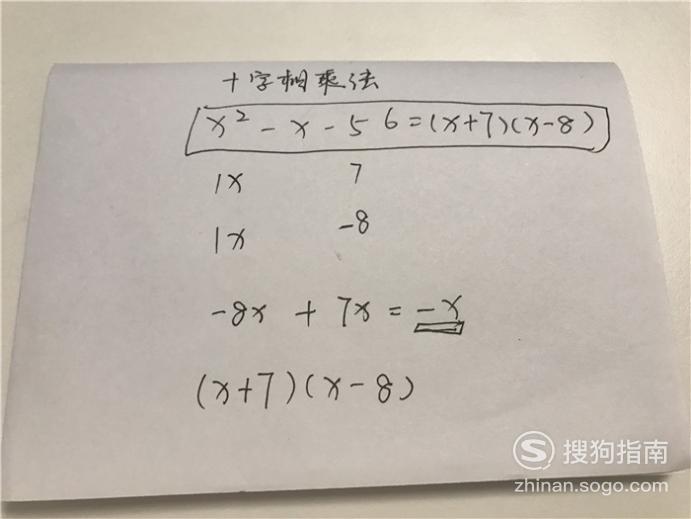 十字相乘法
x² - x - 56=(x+7)(x-8)
1x 7
1x -8
-8x + 7x = -x
(x+7)(x-8)
S 搜狗指南
zhinan.sogo.com